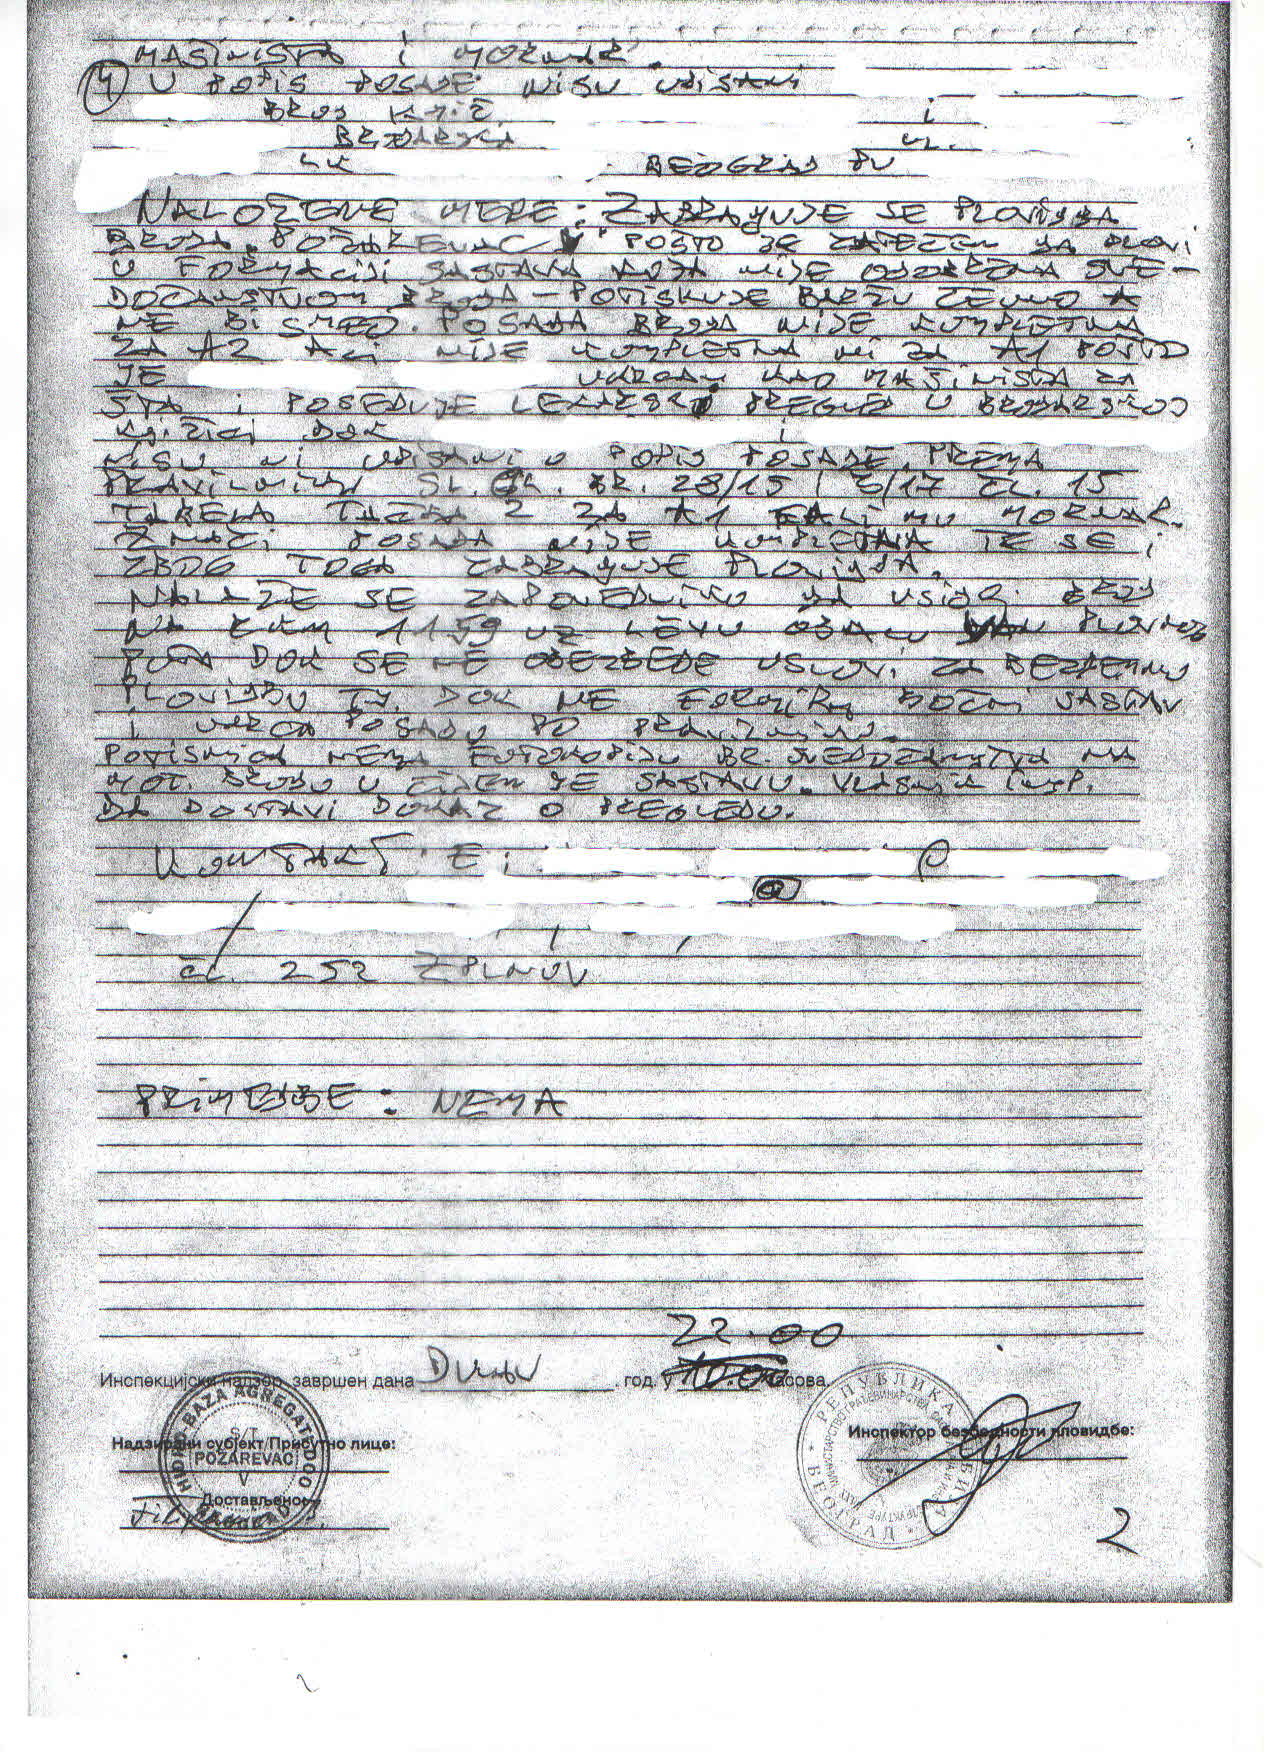 MAŠINISTA I MORNAR.
4 U POPIS POSADE NISU UPISANI
BROJ KNJIŽ. i
BRODARSKA UL.
LK BEOGRAD PU
NALOŽENE MERE: ZABRANJUJE SE PLOVIDBA
BRODA "POŽAREVAC V" POŠTO JE ZATEČEN DA PLOVI
U FORMACIJI SASTAVA KOJA NIJE ODOBRENA SVE-
DOČANSTVOM BRODA - POTISKUJE BARŽU ČEONO A
NE BI SMEO. POSADA BRODA NIJE KOMPLETNA
ZA A2 ALI NIJE KOMPLETNA NI ZA A1 POŠTO
JE UKRCAN KAO MAŠINISTA ZA
ŠTA I POSEDUJE LEKARSKI PREGLED U BRODARSKOJ
KNJIŽICI DOK i
NISU NI UPISANI U POPIS POSADE. PREMA
PRAVILNIKU SL. GL. BR. 28/15 I 3/17 ČL. 15
TABELA TAČKA 2 ZA A1 FALI MU MORNAR.
ZNAČI POSADA NIJE KOMPLETNA TE SE I
ZBOG TOGA ZABRANJUJE PLOVIDBA.
NALAŽE SE ZAPOVEDNIKU DA USIDRI BROD
NA KM 1159 UZ LEVU OBALU VAN PLOVNOG
PUTA DOK SE NE OBEZBEDE USLOVI ZA BEZBEDNU
PLOVIDBU TJ. DOK NE FORMIRA BOČNI SASTAV
I UKRCA POSADU PO PRAVILNIKU.
POTISNICA NEMA FOTOKOPIJU BR. SVEDOČANSTVA NA
MOT. BRODU U ČIJEM JE SASTAVU. VLASNIK
DA DOSTAVI DOKAZ O PREGLEDU.
KONTAKT E:
@
ČL. 252 ZPLNUV
PRIMEDBE: NEMA
22.00
Инспекцијски надзор завршен дана . год. у часова.
HIDRO-BAZA AGREGATI DOO
S/T
POŽAREVAC
V
BEOGRAD
Надзирани субјект/Присутно лице:
Достављено
РЕПУБЛИКА СРБИЈА
БЕОГРАД
Инспектор безбедности пловидбе:
2